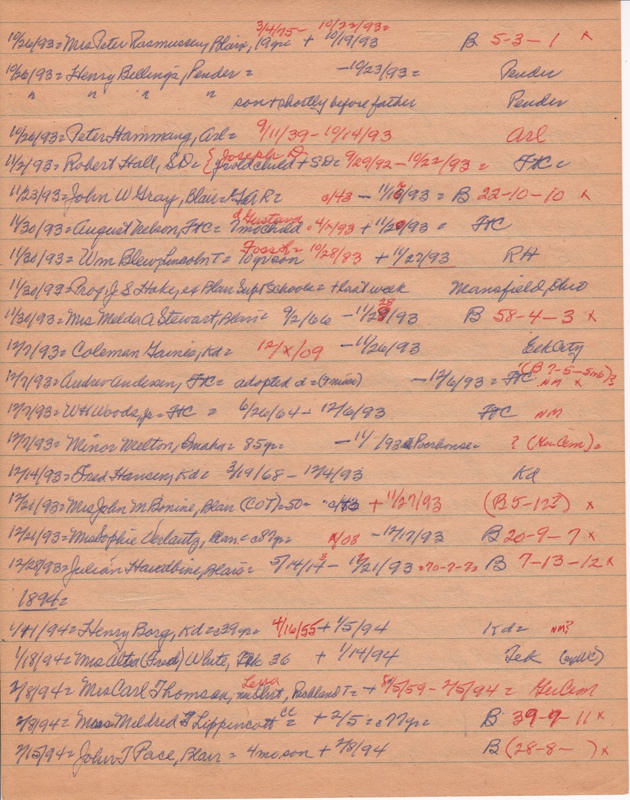 3/4/75- 10/22/93=
10/26/93=Mrs Peter Rasmussen, Blair, 19yrs + 10/19/93 B 5-3-1 x
10/26/93=Henry Billings, Pender = -10/23/93= Pender
" " " " son + shortly before father Pender
10/26/93=Peter Hammang, Arl= 9/11/39-10/14/93 Arl
11/2/93=Robert Hall, S.D.= {Joseph D. child + SD= 9/29/92-10/22/93 = FtC=
11/23/93=John W Gray, Blair=GAR= /43 - 11/ /93= B 22-10-10 x
11/30/93=August Nelson, FtC= Gustav child 4/ /93 + 11/2 /93 = FtC
11/30/93=Wm Blew, Lincoln T= son 10/28/83 + 11/27/93 RH
11/30/93=Prof. J S Hake, ex Blair Supt Schools= + last week Mansfield, Ohio
11/30/93=Mrs Melda A Stewart, Blair= 9/2/66 -11/28/93 B 58-4-3 x
12/7/93=Coleman Gaines, Kd= 12/x/09 -11/26/93 Elk City
12/7/93=Andrew Andersen, FtC= adopted d= -12/6/93= FtC (B 7-5- )? NM x
12/7/93=W H Woods, Jr=FtC = 6/26/64-12/6/93 FtC NM
12/7/93=Minor Melton, Omaha= 85yr= -11/ /93 Poorhouse= ? =
12/14/93=Fred Hansen, Kd= 3/19/68-12/4/93 Kd
12/21/93=Mrs John M Bonine, Blair (COT)=50= c/43 + 11/27/93 (B5-12?) x
12/21/93=Mrs Sophie , Blair= c87yr= x/08 -12/17/93 B 20-9-7 x
12/28/93=Julian Hawthine, Blair= 5/14/1 -12/21/93=70-7-7= B 7-13-12 x
1894=
1/11/94=Henry Borg, Kd=c39yr= 4/16/55 + 1/5/94 Kd= NM?
1/18/94=Mrs Alta (Fred) White, Tek 36 + 1/14/94 Tek
2/8/94=Mrs Carl Thomson, Lena, Richland T= + 8/5/59-2/5/94 =
2/8/94=Miss Mildred Lippincott = + 2/5=c77yr= B 39-9-11 x
2/15/94=John T Pace, Blair = 4mo son + 2/8/94 B (28-8- )x